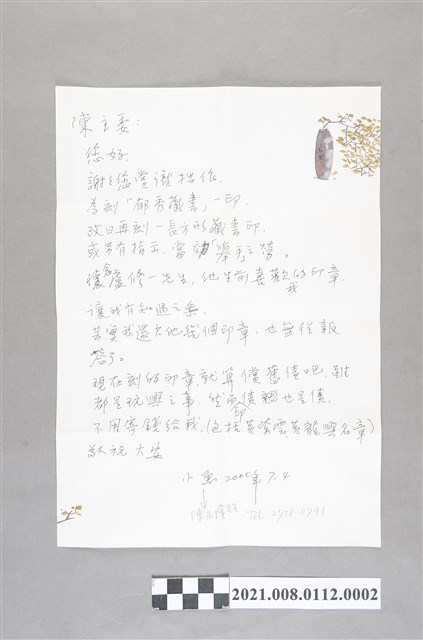 陳主委：
您好.
謝謝您賞識拙作.
為刻「郁秀藏書」一印.
改日再刻一長方形藏書印.
或另有指示. 當効「舉手之勞」.
懷念盧修一先生. 他生前喜歡我的印章.
讓我有知遇之樂.
其實我還欠他幾個印章. 也無從報
答了。
現在刻的印章就算償舊債吧. 雖
都是玩興之事. 然而債印也是債.
不用寄錢給我. (包括黃 雲黃 興名章)
敬祝 大安
小魚 2000年 7.4
陳正隆 Tel
2021.008.0112.0002